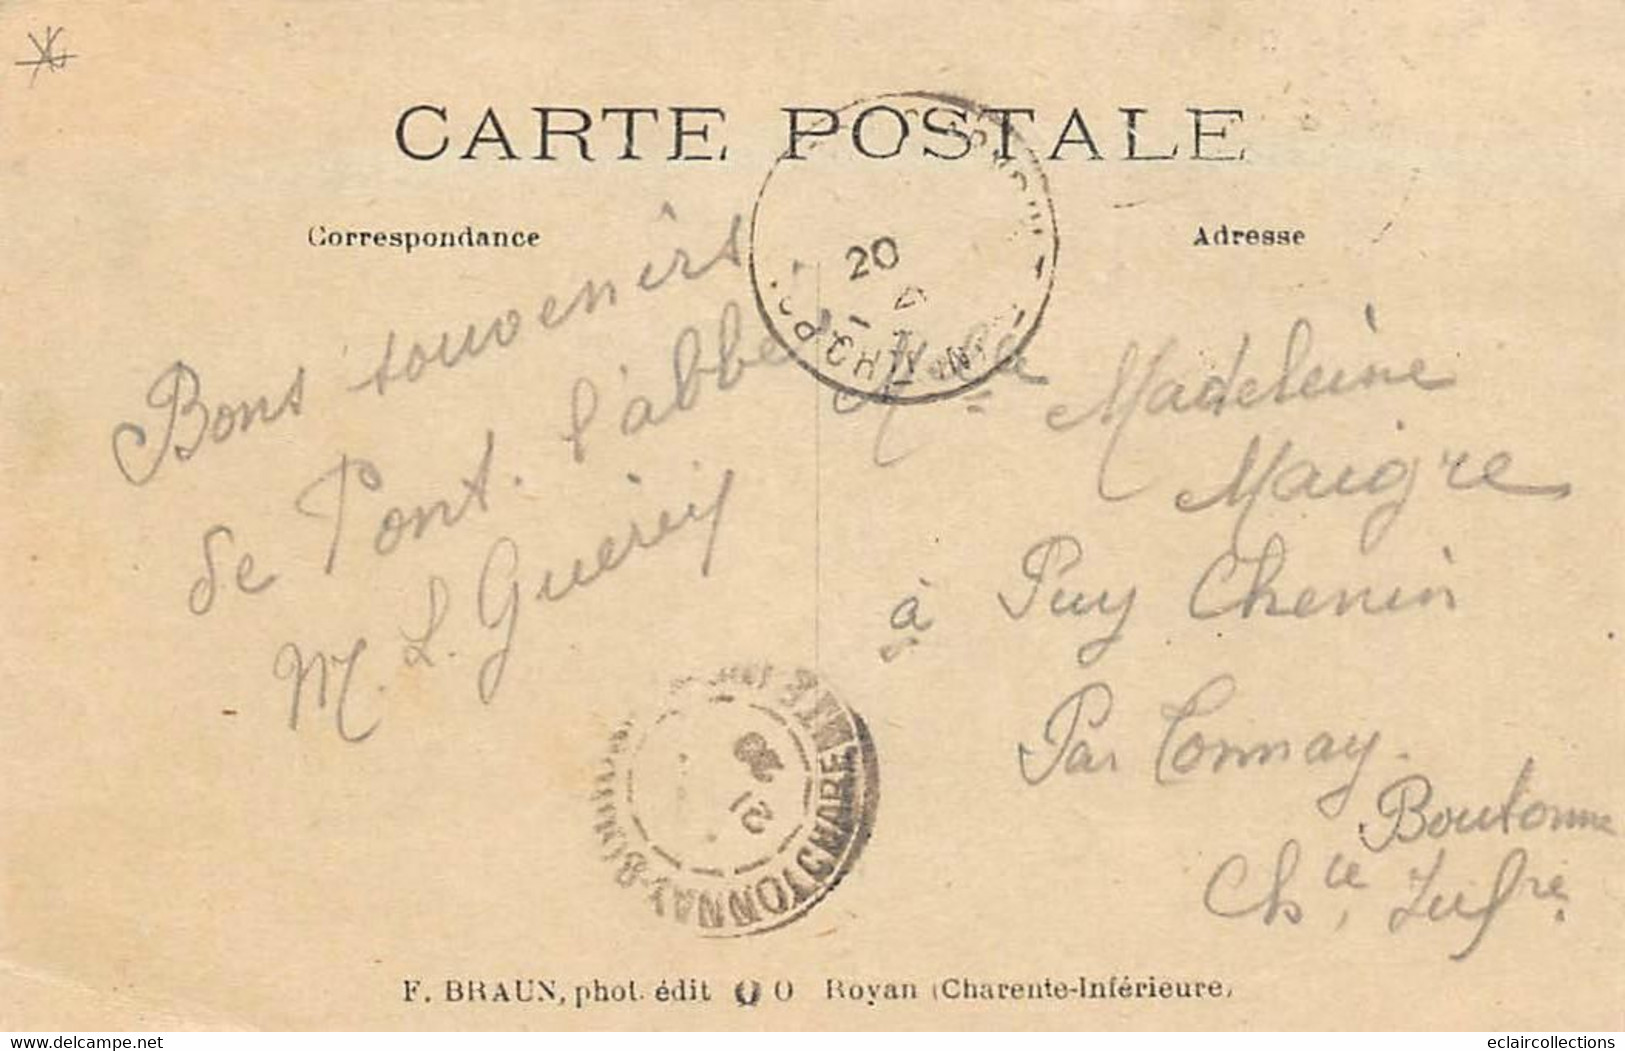 CARTE POSTALE
Correspondance
Adresse
Bons souvenirs
de Pont. l'abbé
M. L. Guérin
20
Madeleine
Maigre
à Puy Chenin
Par Tonnay.
Boutonne
Ch.te Infre.
TONNAY-B
CHARE
F. BRAUN, phot. édit Royan (Charente-Inférieure)
eclaircollections